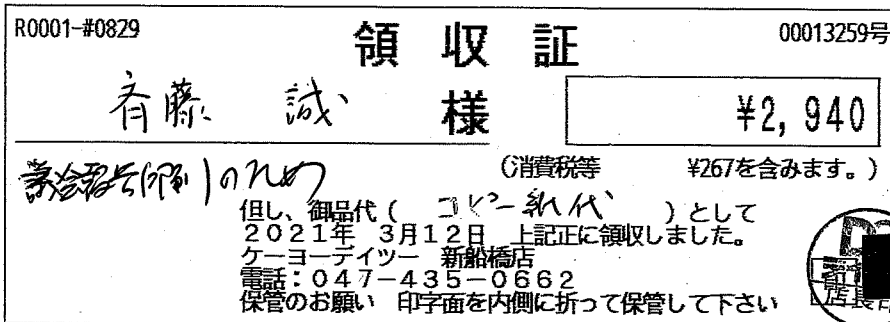 R0001-#0829
00013259号
領収証
斉藤 誠 様
¥2,940
(消費税等 ¥267を含みます。)
のため
但し、御品代( コピー紙代 )として
2021年 3月12日 上記正に領収しました。
ケーヨーデイツー 新船橋店
電話:047-435-0662
保管のお願い 印字面を内側に折って保管して下さい